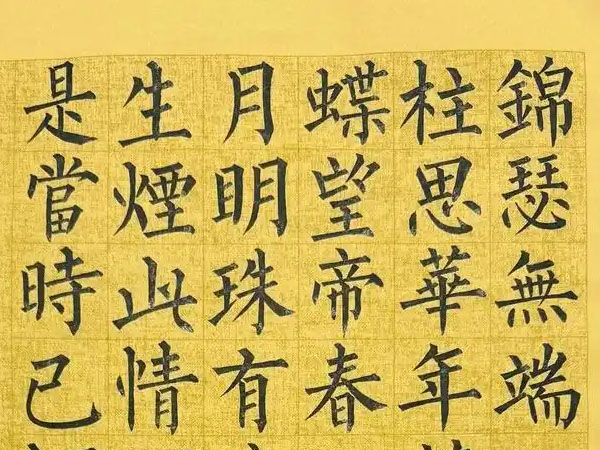 錦瑟無端
柱思華年
蝶望帝春
月明珠有
生煙此情
是當時已